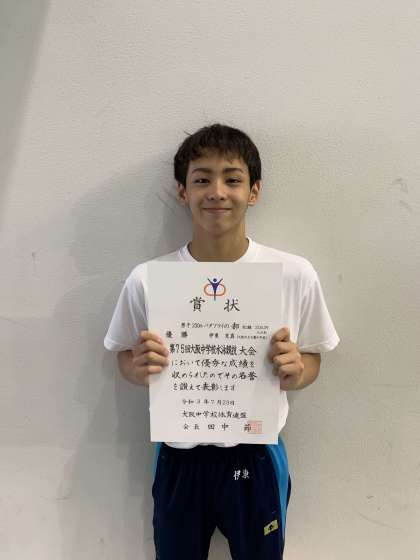 賞状
男子200mバタフライの部
優勝
第75回大阪中学校水泳競技大会
において優秀な成績を
収められたのでその名誉
を讃えて表彰します
令和3年7月23日
大阪中学校体育連盟
会長 田中 節
伊東